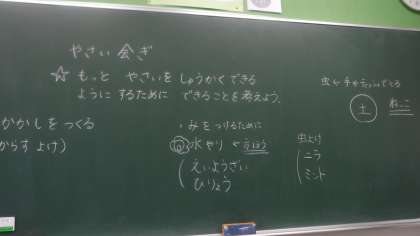 やさい会ぎ
☆もっと やさいを しゅうかくできる
ようにするために できることを考えよう。
かかしをつくる
からすよけ)
・みをつけるために
水やり
えいようざい
ひりょう
虫よけ
ニラ
ミント
虫←手や
でとる
土
ねっこ